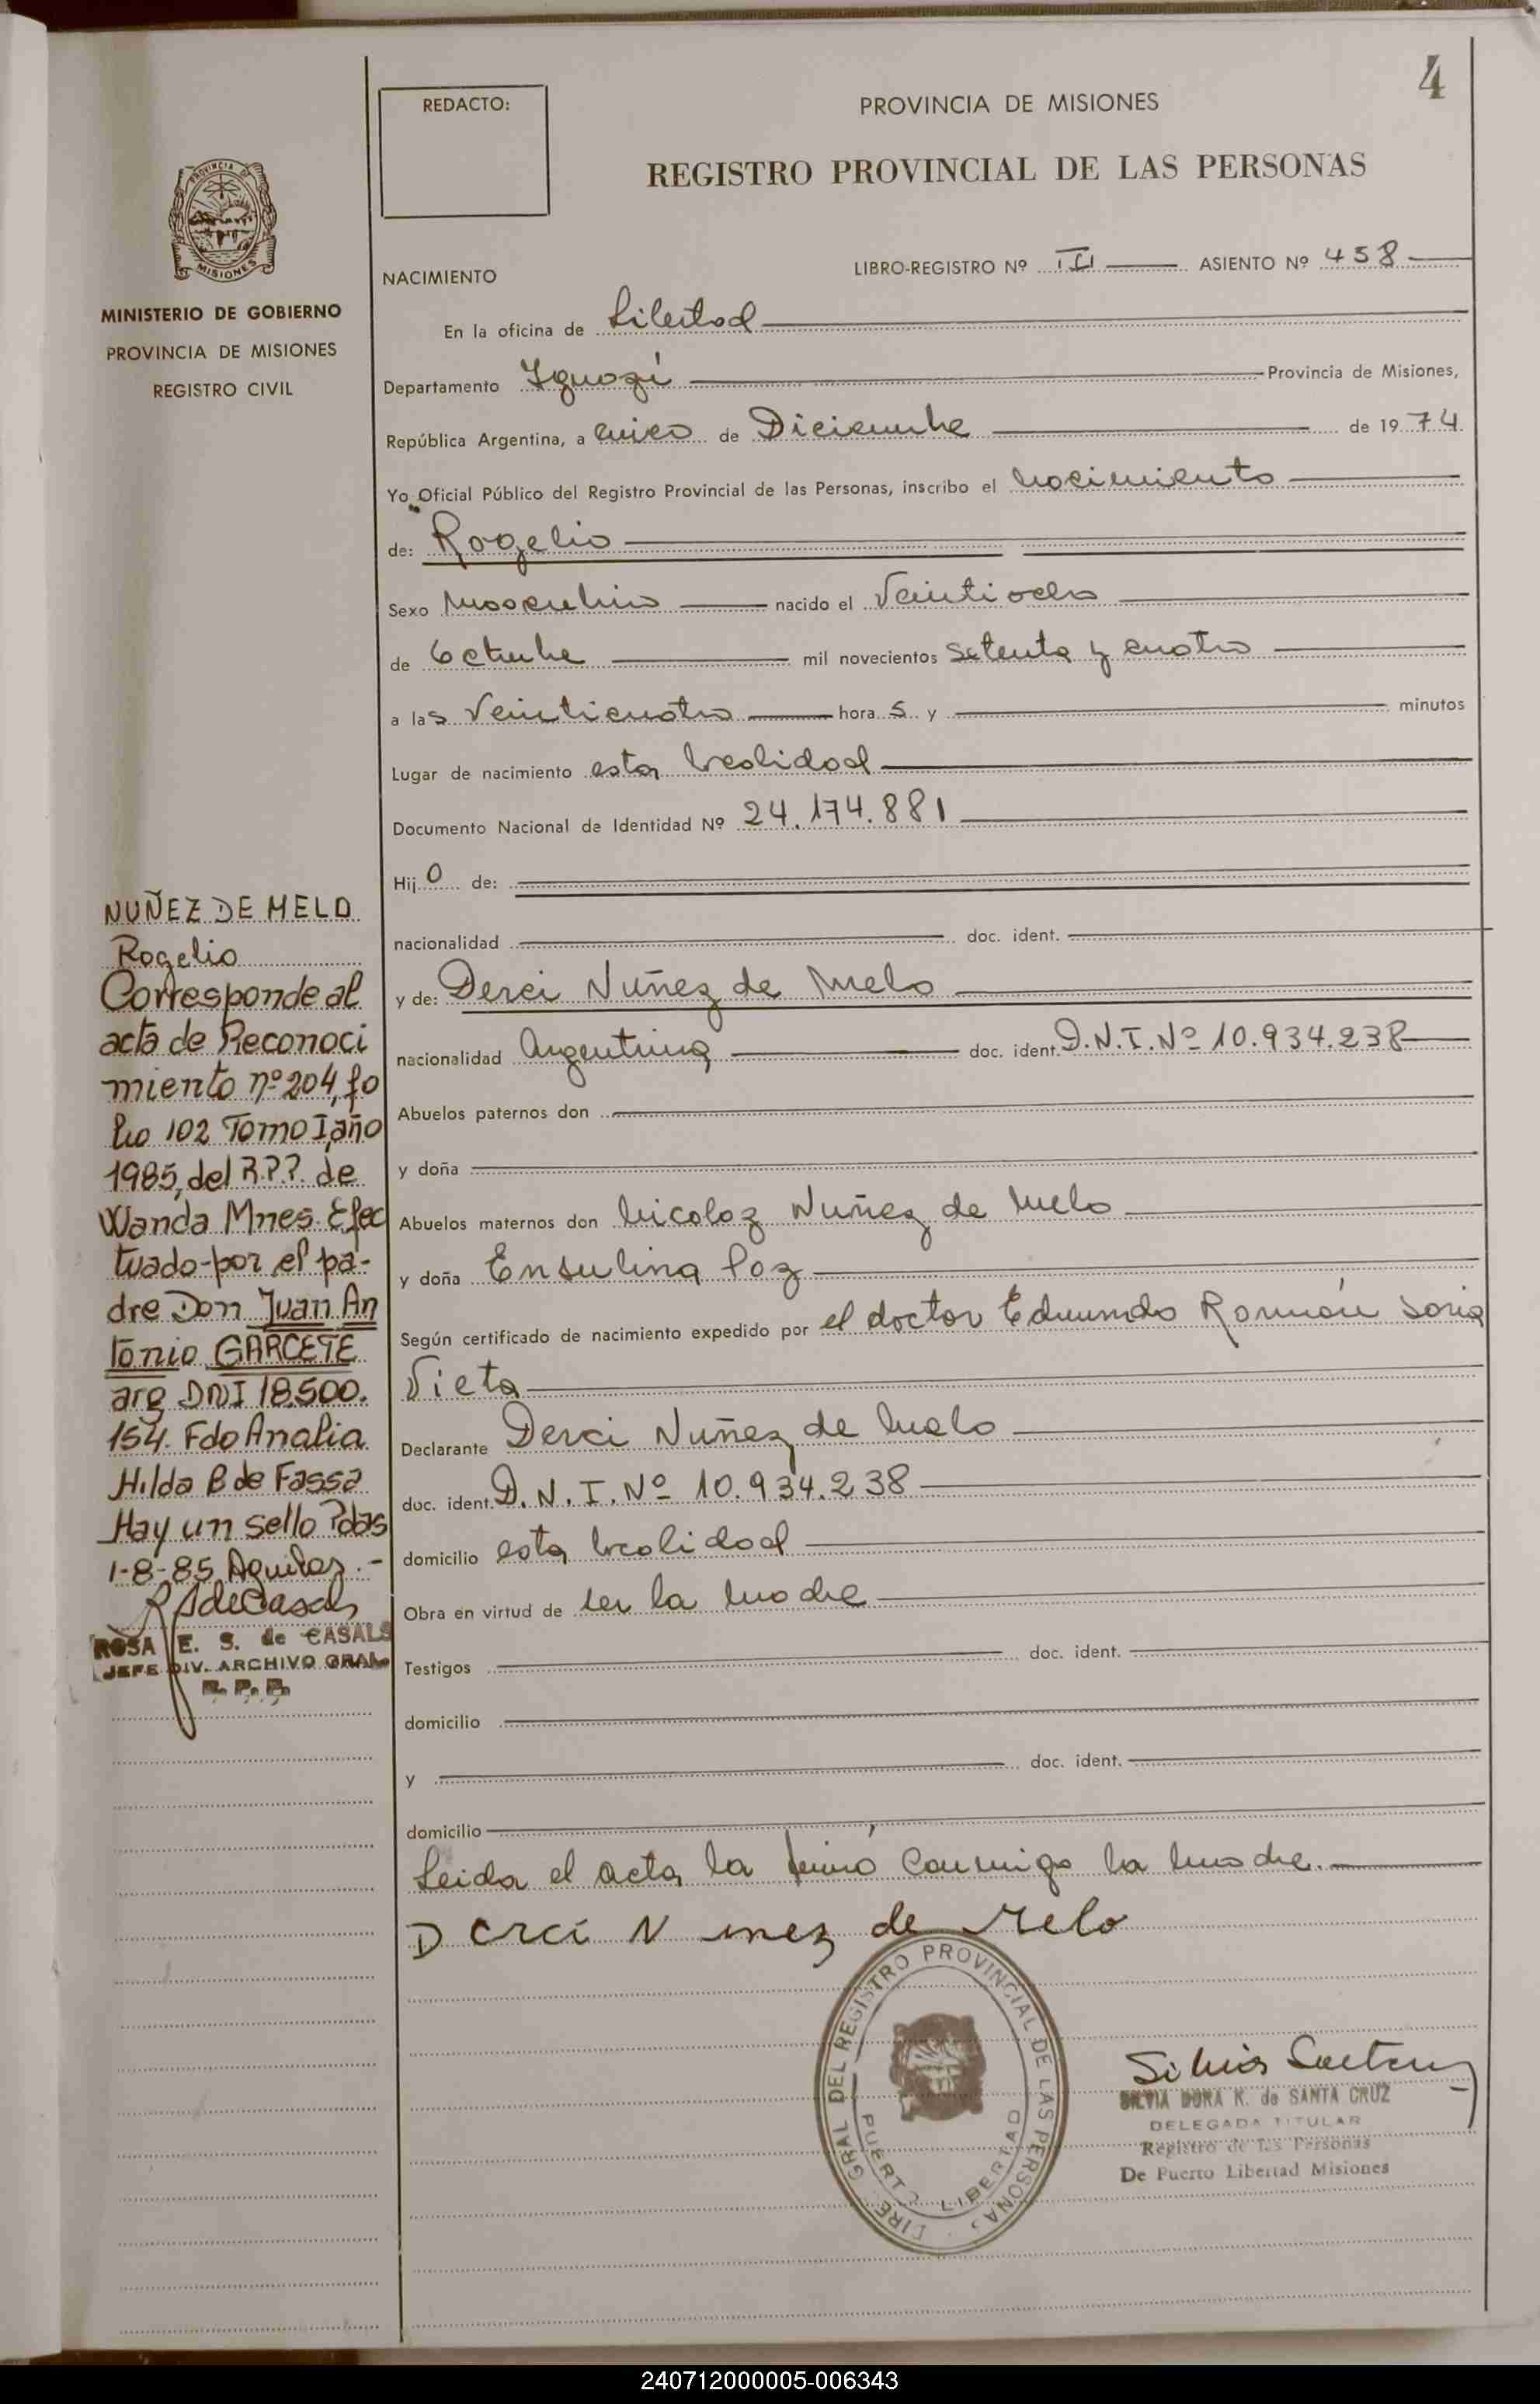 4
REDACTO:
PROVINCIA DE MISIONES
REGISTRO PROVINCIAL DE LAS PERSONAS
PROVINCIA DE
MISIONES
MINISTERIO DE GOBIERNO
PROVINCIA DE MISIONES
REGISTRO CIVIL
NACIMIENTO
LIBRO-REGISTRO Nº III ASIENTO Nº 458
En la oficina de Libertad
Departamento Iguazú Provincia de Misiones,
República Argentina, a cinco de Diciembre de 1974
Yo Oficial Público del Registro Provincial de las Personas, inscribo el nacimiento
de: Rogelio
Sexo Masculino nacido el Veintiocho
de Octubre mil novecientos setenta y cuatro
a las Veinticuatro hora s y minutos
Lugar de nacimiento esta localidad
Documento Nacional de Identidad Nº 24.174.881
Hijo de:
nacionalidad doc. ident.
y de: Derci Nuñez de Melo
nacionalidad Argentina doc. ident. D.N.I. Nº 10.934.238
Abuelos paternos don
y doña
Abuelos maternos don Nicolaz Nuñez de Melo
y doña Ensulina Poz
Según certificado de nacimiento expedido por el doctor Edmundo Román Soria
Vieta
Declarante Derci Nuñez de Melo
doc. ident. D.N.I. Nº 10.934.238
domicilio esta localidad
Obra en virtud de ser la madre
Testigos doc. ident.
domicilio
y doc. ident.
domicilio
Leida el acta, la firmó conmigo la madre.
Derci Nunez de Melo
NUÑEZ DE MELO
Rogelio
Corresponde al
acta de Reconoci
miento nº 204, fo
lio 102 Tomo I, año
1985, del R.P.P. de
Wanda Mnes. Efec
tuado por el pa-
dre Don Juan An
tonio GARCETE
arg DNI 18.500.
154. Fdo Analia
Hilda B de Fassa
Hay un sello Pdas
1-8-85 Aguilar.-
ROSA E. S. de CASALS
JEFE DIV. ARCHIVO GRAL
R. P. P.
DIRE. GRAL DEL REGISTRO PROVINCIAL DE LAS PERSONAS
PUERTO LIBERTAD
SILVIA DORA K. de SANTA CRUZ
DELEGADA TITULAR
Registro de las Personas
De Puerto Libertad Misiones
240712000005-006343